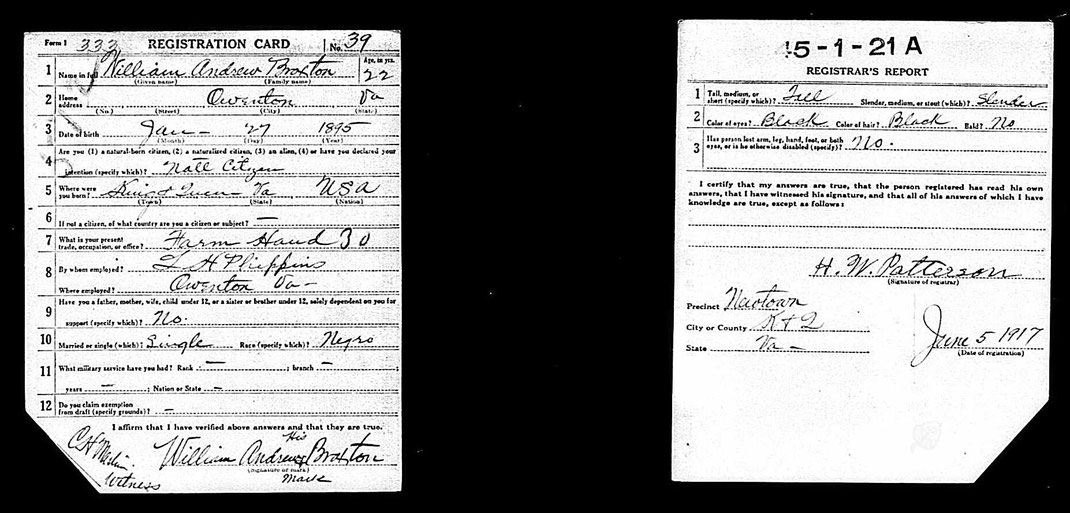 Form 1 333 REGISTRATION CARD No. 39
1 Name in full William Andrew Braxton Age, in yrs. 22
(Given name) (Family name)
2 Home address Owenton Va
(No.) (Street) (City) (State)
3 Date of birth Jan - 27 1895
(Month) (Day) (Year)
Are you (1) a natural-born citizen, (2) a naturalized citizen, (3) an alien, (4) or have you declared your
4 intention (specify which)? Natl Citizen
5 Where were you born? King & Queen Va USA
(Town) (State) (Nation)
6 If not a citizen, of what country are you a citizen or subject? —
7 What is your present trade, occupation, or office? Farm Hand 30
8 By whom employed? H
Where employed? Owenton Va -
9 Have you a father, mother, wife, child under 12, or a sister or brother under 12, solely dependent on you for
support (specify which)? No.
10 Married or single (which)? Single Race (specify which)? Negro
11 What military service have you had? Rank — ; branch — ;
years — ; Nation or State —
12 Do you claim exemption from draft (specify grounds)? —
I affirm that I have verified above answers and that they are true.
His
William Andrew Braxton
(Signature or mark)
Mark
C H Martin
Witness
5-1-21 A
REGISTRAR'S REPORT
1 Tall, medium, or short (specify which)? Tall Slender, medium, or stout (which)? Slender
2 Color of eyes? Black Color of hair? Black Bald? No
3 Has person lost arm, leg, hand, foot, or both eyes, or is he otherwise disabled (specify)? No.
I certify that my answers are true, that the person registered has read his own
answers, that I have witnessed his signature, and that all of his answers of which I have
knowledge are true, except as follows:
H. W. Patterson
(Signature of registrar)
Precinct Newtown
City or County K & Q
State Va -
June 5 1917
(Date of registration)